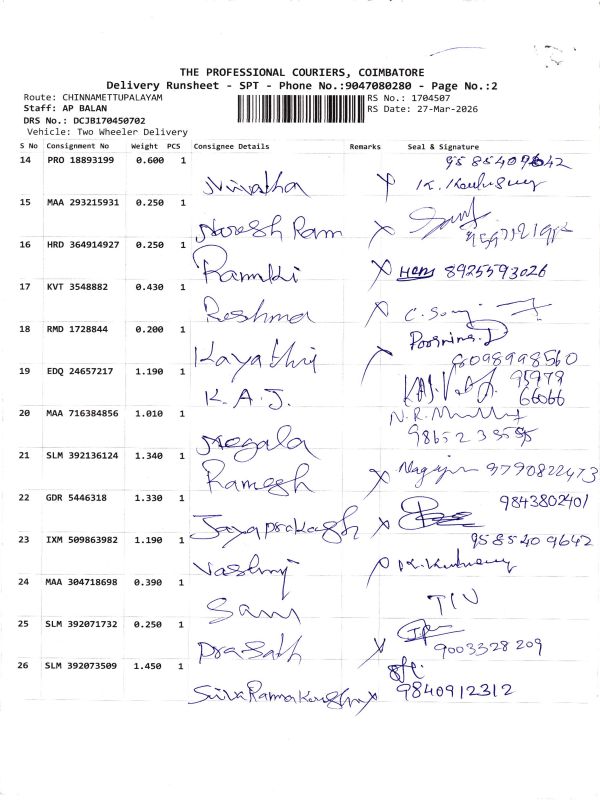 THE PROFESSIONAL COURIERS, COIMBATORE
Delivery Runsheet - SPT - Phone No.:9047080280 - Page No.:2
Route: CHINNAMETTUPALAYAM RS No.: 1704507
Staff: AP BALAN RS Date: 27-Mar-2026
DRS No.: DCJB170450702
Vehicle: Two Wheeler Delivery
S No Consignment No Weight PCS Consignee Details Remarks Seal & Signature
14 PRO 18893199 0.600 1 9585409642
Nivatha
15 MAA 293215931 0.250 1
Naresh Ram
16 HRD 364914927 0.250 1
Ramki 8925593026
17 KVT 3548882 0.430 1
Reshma
18 RMD 1728844 0.200 1 Poornima.D
Kayathri 8098998560
19 EDQ 24657217 1.190 1 95979
K.A.J. 66066
20 MAA 716384856 1.010 1
Megala
21 SLM 392136124 1.340 1
Ramesh 9790822473
22 GDR 5446318 1.330 1 9843802401
Jayaprakash
23 IXM 509863982 1.190 1 9585409642
Vashmj
24 MAA 304718698 0.390 1
Sam
25 SLM 392071732 0.250 1
Prasath 9003328209
26 SLM 392073509 1.450 1
9840912312